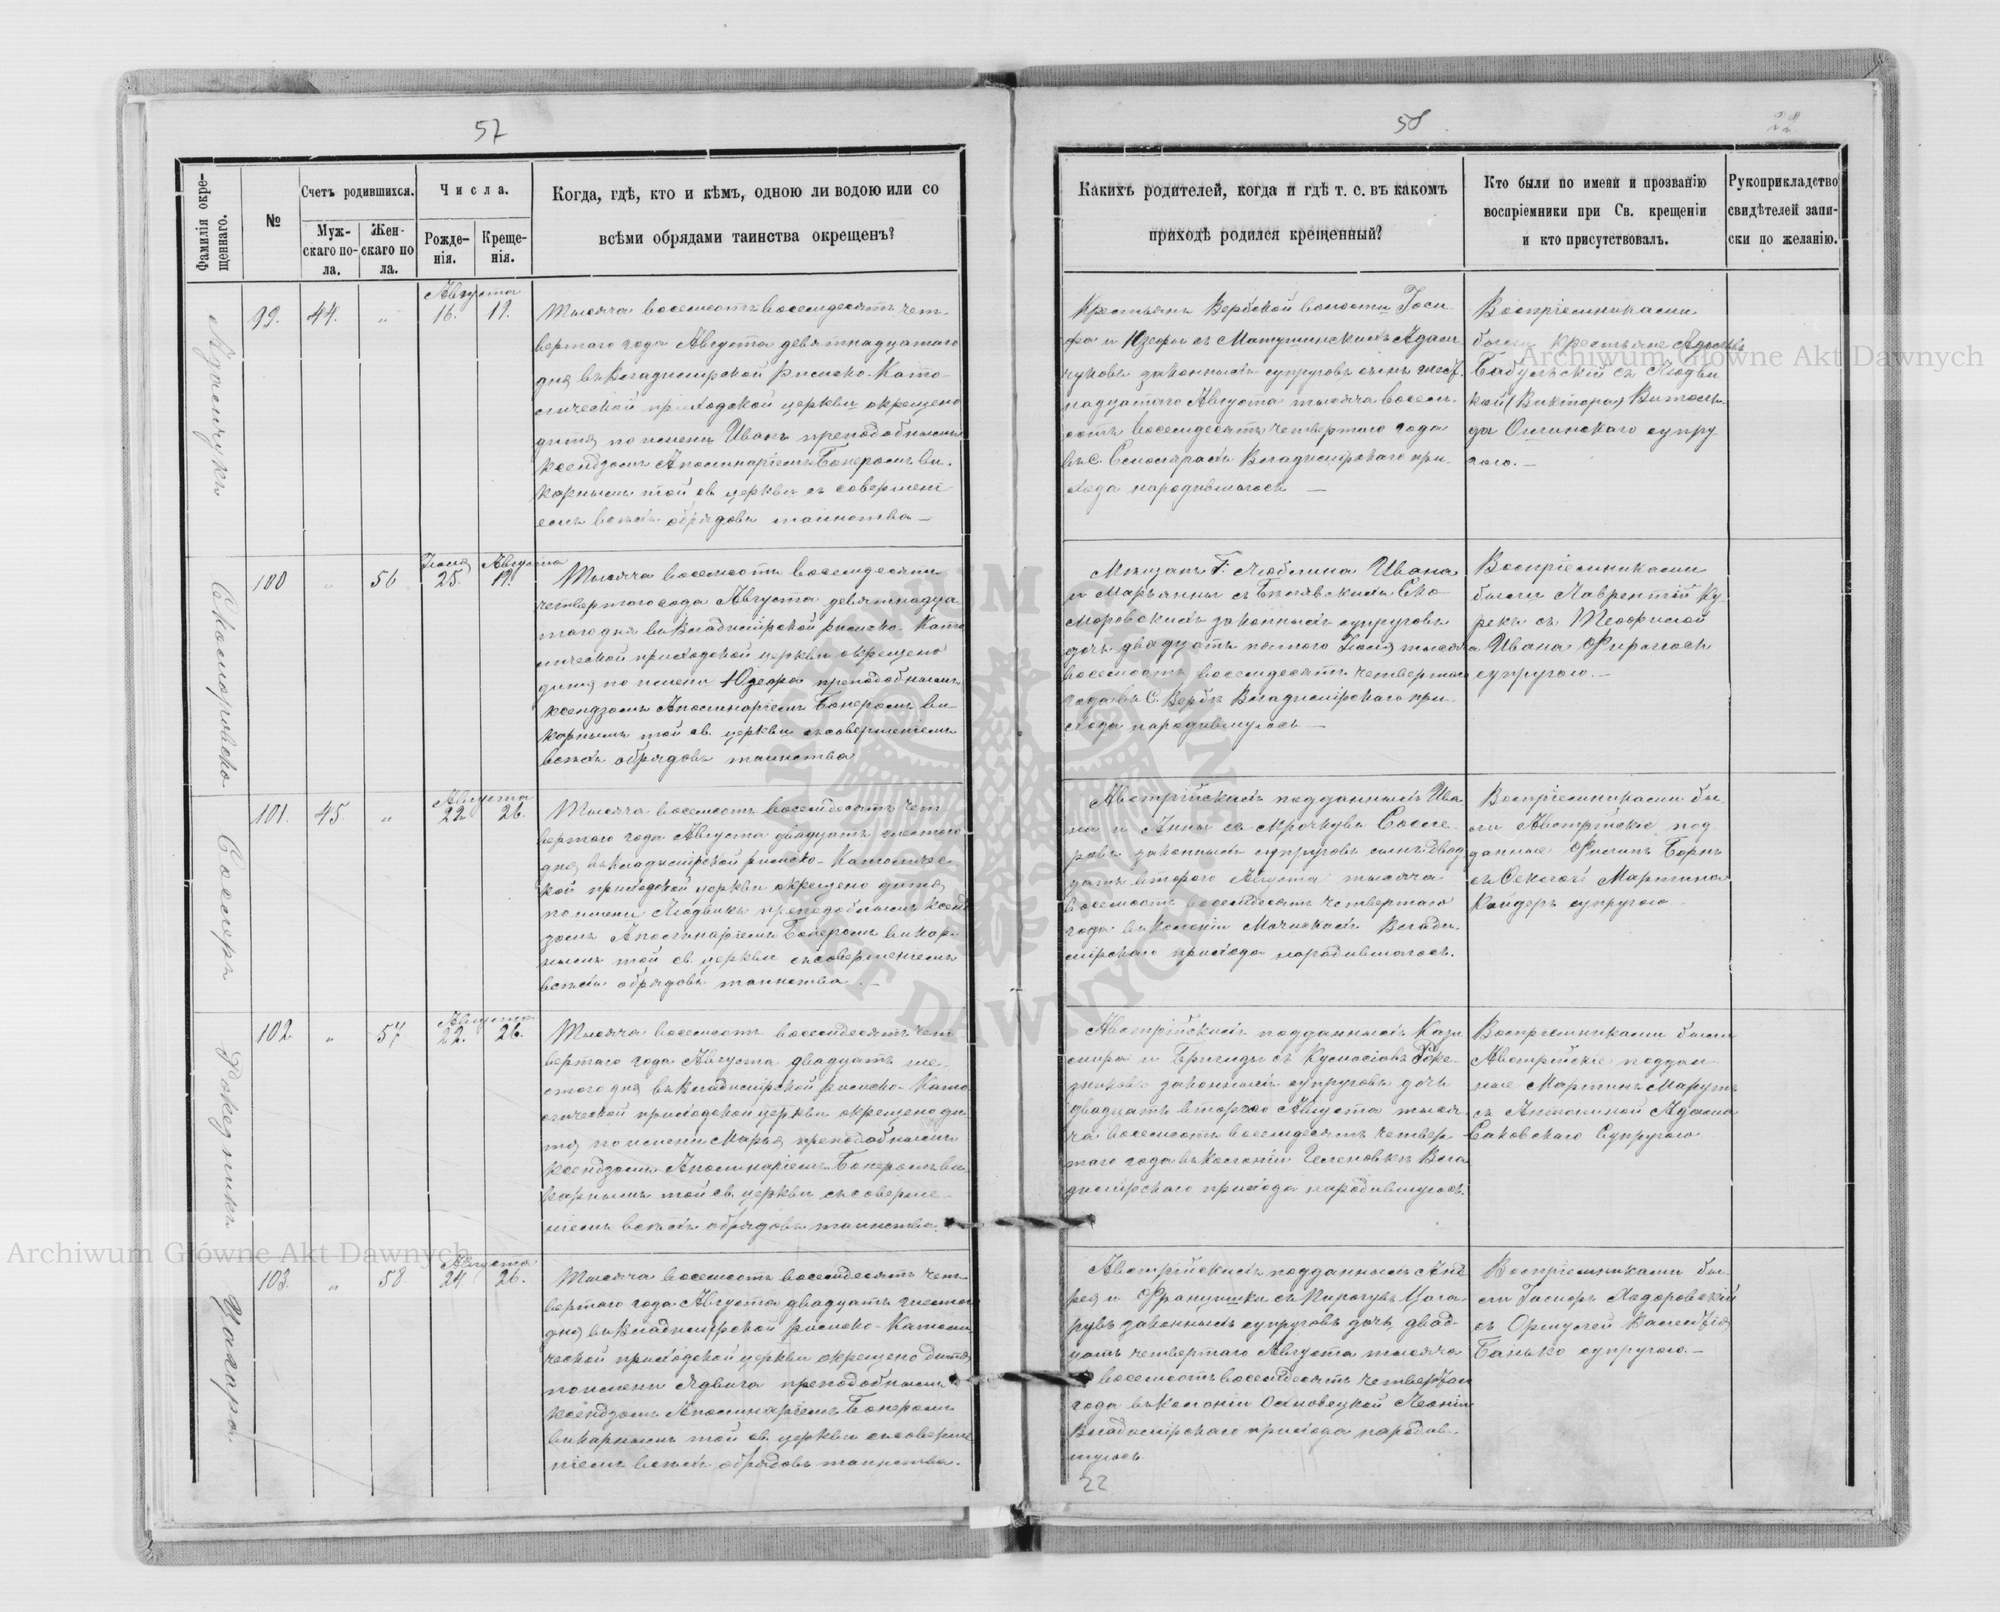 57
Фамилія окрещеннаго.
№
Счетъ родившихся.
Мужскаго пола.
Женскаго пола.
Числа.
Рожденія.
Крещенія.
Когда, гдѣ, кто и кѣмъ, одною ли водою или со
всѣми обрядами таинства окрещенъ?
Адамчукъ
99. 44. „
Августа
16. 19.
Тысяча восемьсотъ восемдесятъ чет-
вертаго года Августа девятнадцатаго
дня въ Владимірской римско-Като-
лической приходской церкви окрещено
дитя по имени Иванъ преподобнымъ
ксендзомъ Аполинаріемъ Бонеромъ ви-
карнымъ той св. церкви съ совершені-
емъ всѣхъ обрядовъ таинства —
Скоморовско
100 „ 56
Іюля 25. Августа 19.
Тысяча восемьсотъ восемдесятъ
четвертаго года Августа девятнадца-
таго дня въ Владимірской римско-Като
лической приходской церкви окрещено
дитя по имени Юзефа преподобнымъ
ксендзомъ Аполинаріемъ Бонеромъ ви-
карнымъ той св. церкви съ совершеніемъ
всѣхъ обрядовъ таинства
101. 45 „
Августа
22 26.
Тысяча восемьсотъ восемдесятъ чет
вертаго года Августа двадцать шестого
дня въ Владимірской римско-Католичес-
кой приходской церкви окрещено дитя
по имени Людвикъ преподобнымъ ксенд
зомъ Аполинаріемъ Бонеромъ викар-
нымъ той св. церкви съ совершеніемъ
всѣхъ обрядовъ таинства. —
102. „ 57
Августа
22. 26.
Тысяча восемьсотъ восемдесятъ чет
вертаго года Августа двадцать ше-
стого дня въ Владимірской римско-Като
лической приходской церкви окрещено ди
тя по имени Марья преподобнымъ
ксендзомъ Аполинаріемъ Бонеромъ ви-
карнымъ той св. церкви съ соверше-
ніемъ всѣхъ обрядовъ таинства.
Цахара
103. „ 58
Августа
24 26.
Тысяча восемьсотъ восемдесятъ чет-
вертаго года Августа двадцать шестого
дня въ Владимірской римско-Католи
ческой приходской церкви окрещено дитя
по имени Ядвига преподобнымъ
ксендзомъ Аполинаріемъ Бонеромъ
викарнымъ той св. церкви съ соверше
ніемъ всѣхъ обрядовъ таинства.
58
22
Какихъ родителей, когда и гдѣ т. с. въ какомъ
приходѣ родился крещенный?
Кто были по имени и прозванію
воспріемники при Св. крещеніи
и кто присутствовалъ.
Рукоприкладство
свидѣтелей запи-
ски по желанію.
Крестьянъ Вербской волости Іоси
фа и Юзефы съ Матушинскихъ Адам
чуковъ законныхъ супруговъ сынъ шест-
надцатого Августа тысяча восемь-
сотъ восемдесятъ четвертаго года
въ с. Владимірскаго при-
хода народившагося —
Воспріемниками
были крестьяне
съ Людви
кой (Виктора) Витоль-
да супру
гою. —
Мѣщанъ Г. Люблина Ивана
и Марьянны съ Бѣлявскихъ Ско
моровскихъ законныхъ супруговъ
дочь двадцать пятого Іюля тысяча
восемьсотъ восемдесятъ четвертаго
года въ с. Вербѣ Владимірскаго при-
хода народившуюсь —
Воспріемниками
были Лаврентій Ку
рекъ съ Теофилой
Ивана
супругою. —
Австрійскихъ подданныхъ Ива-
на и Анны съ
законныхъ супруговъ сынъ двад
цать второго Августа тысяча
восемьсотъ восемдесятъ четвертаго
года въ колоніи Владі-
мірскаго прихода народившагося.
Воспріемниками бы-
ли Австрійскіе под
данные Филипъ Борнъ
съ Мартина
супругою
Австрійскихъ подданныхъ Кази
мира и Бригиды съ
законныхъ супруговъ дочь
двадцать второго Августа тыся
ча восемьсотъ восемдесятъ четвер
таго года въ колоніи Геленовкѣ Вла
димірскаго прихода народившуюсь.
Воспріемниками были
Австрійскіе поддан-
ные Мартинъ
съ Антониной Адама
Саковскаго Супругою
Австрійскихъ подданныхъ Анд
рея и Францишки съ Пироговъ
законныхъ супруговъ дочь двад-
цать четвертаго Августа тысяча
восемьсотъ восемдесятъ четвертаго
года въ колоніи
Владимірскаго прихода народив-
шуюсь
Воспріемниками бы-
ли Гаспаръ Ходоровскій
съ Валентія
Банько супругою. —
22
Archiwum Główne Akt Dawnych
Archiwum Główne Akt Dawnych